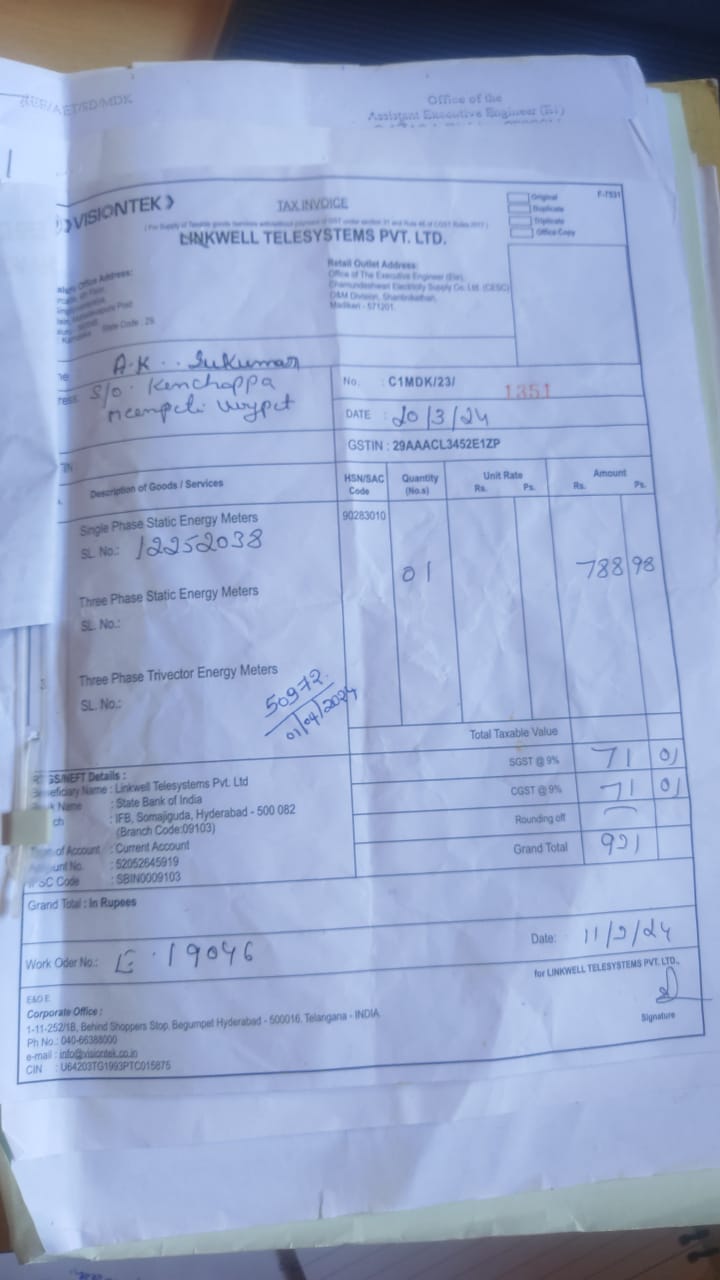 Office of the
Assistant Executive Engineer (El)
VISIONTEK
TAX INVOICE
Original
Duplicate
Triplicate
Office Copy
F-7531
LINKWELL TELESYSTEMS PVT. LTD.
Office Address:
State Code : 29
Retail Outlet Address:
Office of The Executive Engineer (Ele),
Chamundeshwari Electricity Supply Co. Ltd. (CESC)
O&M Division,
Madikeri - 571201.
A.K. Sukumar
S/o. Kenchappa
No. : C1MDK/23/ 1351
DATE : 20/3/24
GSTIN : 29AAACL3452E1ZP
Description of Goods / Services
HSN/SAC Code
Quantity (No.s)
Unit Rate Rs. Ps.
Amount Rs. Ps.
Single Phase Static Energy Meters
90283010
SL. No.: 12252038
01
788 98
Three Phase Static Energy Meters
SL. No.:
Three Phase Trivector Energy Meters
SL. No.:
50972
01/04/2024
Total Taxable Value
SGST @ 9% 71 01
CGST @ 9% 71 01
Rounding off
Grand Total 931
GS/NEFT Details :
eficiary Name : Linkwell Telesystems Pvt. Ltd
Name : State Bank of India
ch : IFB, Somajiguda, Hyderabad - 500 082
(Branch Code:09103)
of Account : Current Account
unt No. : 52052645919
SC Code : SBIN0009103
Grand Total : In Rupees
Work Oder No.: 19046
Date: 11/2/24
for LINKWELL TELESYSTEMS PVT. LTD.,
Signature
E&O E.
Corporate Office :
1-11-252/1B, Behind Shoppers Stop, Begumpet Hyderabad - 500016, Telangana - INDIA
Ph No.: 040-66388000
e-mail : info@visiontek.co.in
CIN : U64203TG1993PTC015875